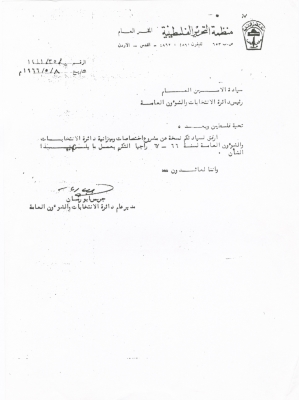 منظمة التحرير الفلسطينية
ص.ب ٦٥٣ القدس - الأردن
الرقم
التاريخ ١٩٦٦/٥/٨م
سيادة الأمين العام
رئيس دائرة الانتخابات والشؤون الخاصة
تحية فلسطين وبعد ،
ارفق لسيادتكم نسخة عن مشروع اختصاصات وميزانية دائرة الانتخابات
والشؤون الخاصة لسنة ٦٦ - ٦٧ راجيا التكرم بعمل ما يلزم بهذا
الشأن
واننا لعائدون
مدير عام دائرة الانتخابات والشؤون الخاصة